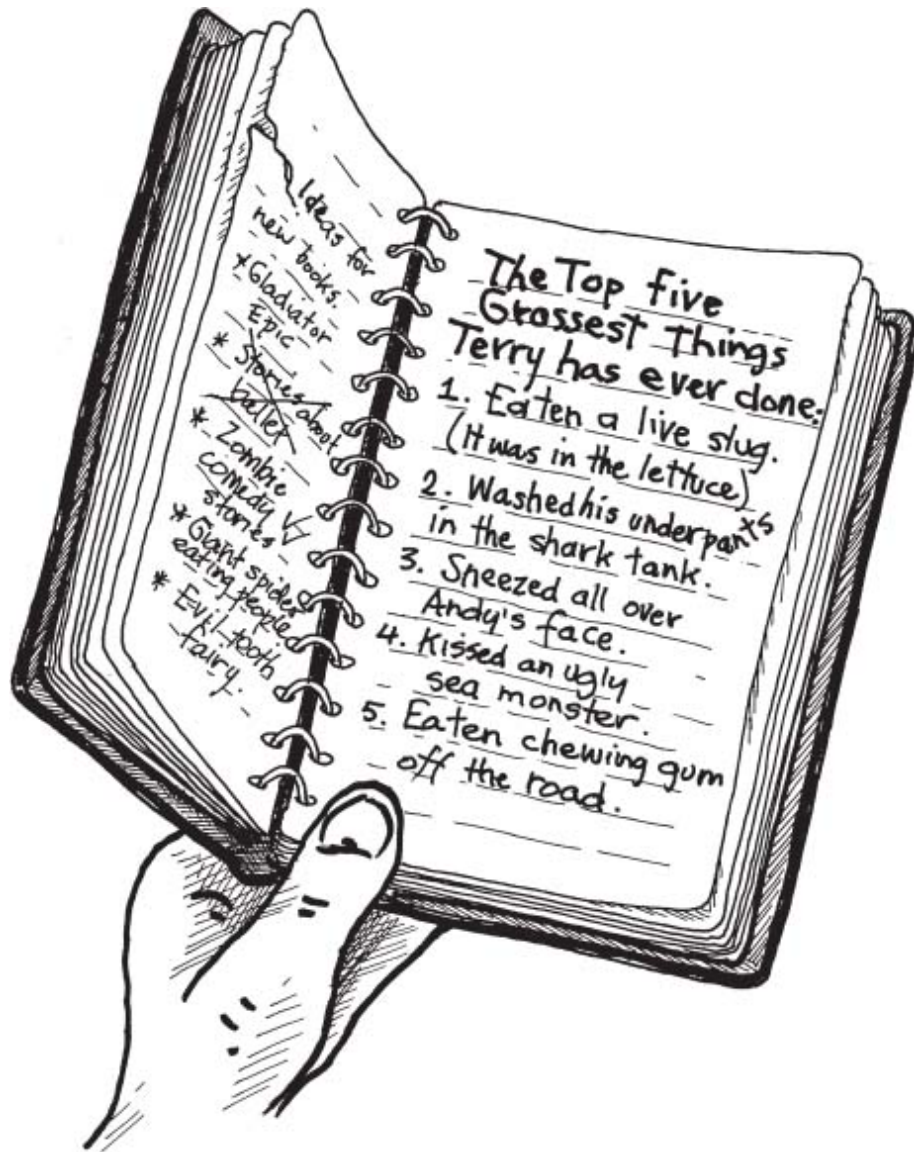 Ideas for
new books.
* Gladiator
Epic
* Stories about
ballet
* Zombie
comedy
stories ✓✓
* Giant spider
eating people
* Evil tooth
fairy.
The Top five
Grossest Things
Terry has ever done.
1. Eaten a live slug.
(It was in the lettuce)
2. Washed his underpants
in the shark tank.
3. Sneezed all over
Andy's face.
4. Kissed an ugly
sea monster.
5. Eaten chewing gum
off the road.